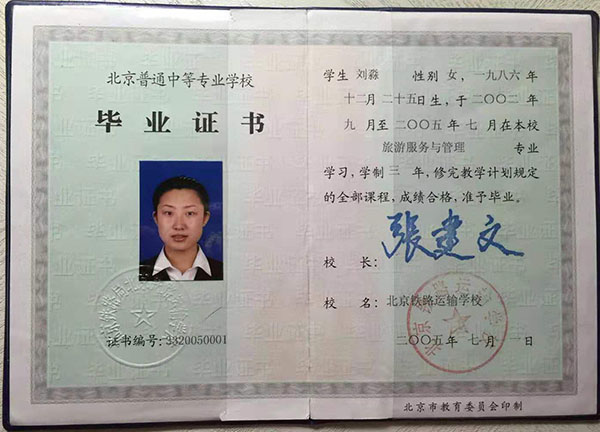 北京普通中等专业学校
毕业证书
证书编号:3320050001
学生 刘淼 性别 女,一九八六年
十二月二十五日生,于二〇〇二年
九月至二〇〇五年七月在本校
旅游服务与管理 专业
学习,学制三年,修完教学计划规定
的全部课程,成绩合格,准予毕业。
校 长: 張建文
校 名: 北京铁路运输学校
二〇〇五年七月一日
北京市教育委员会印制